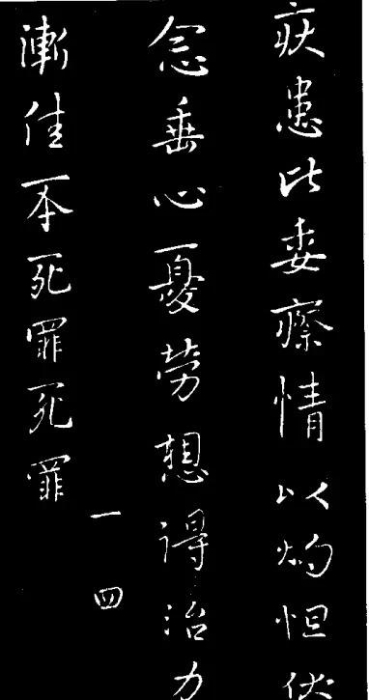 疾患比委瘵情以灼怛伏
念垂心憂勞想得治力
漸佳死罪死罪
一四